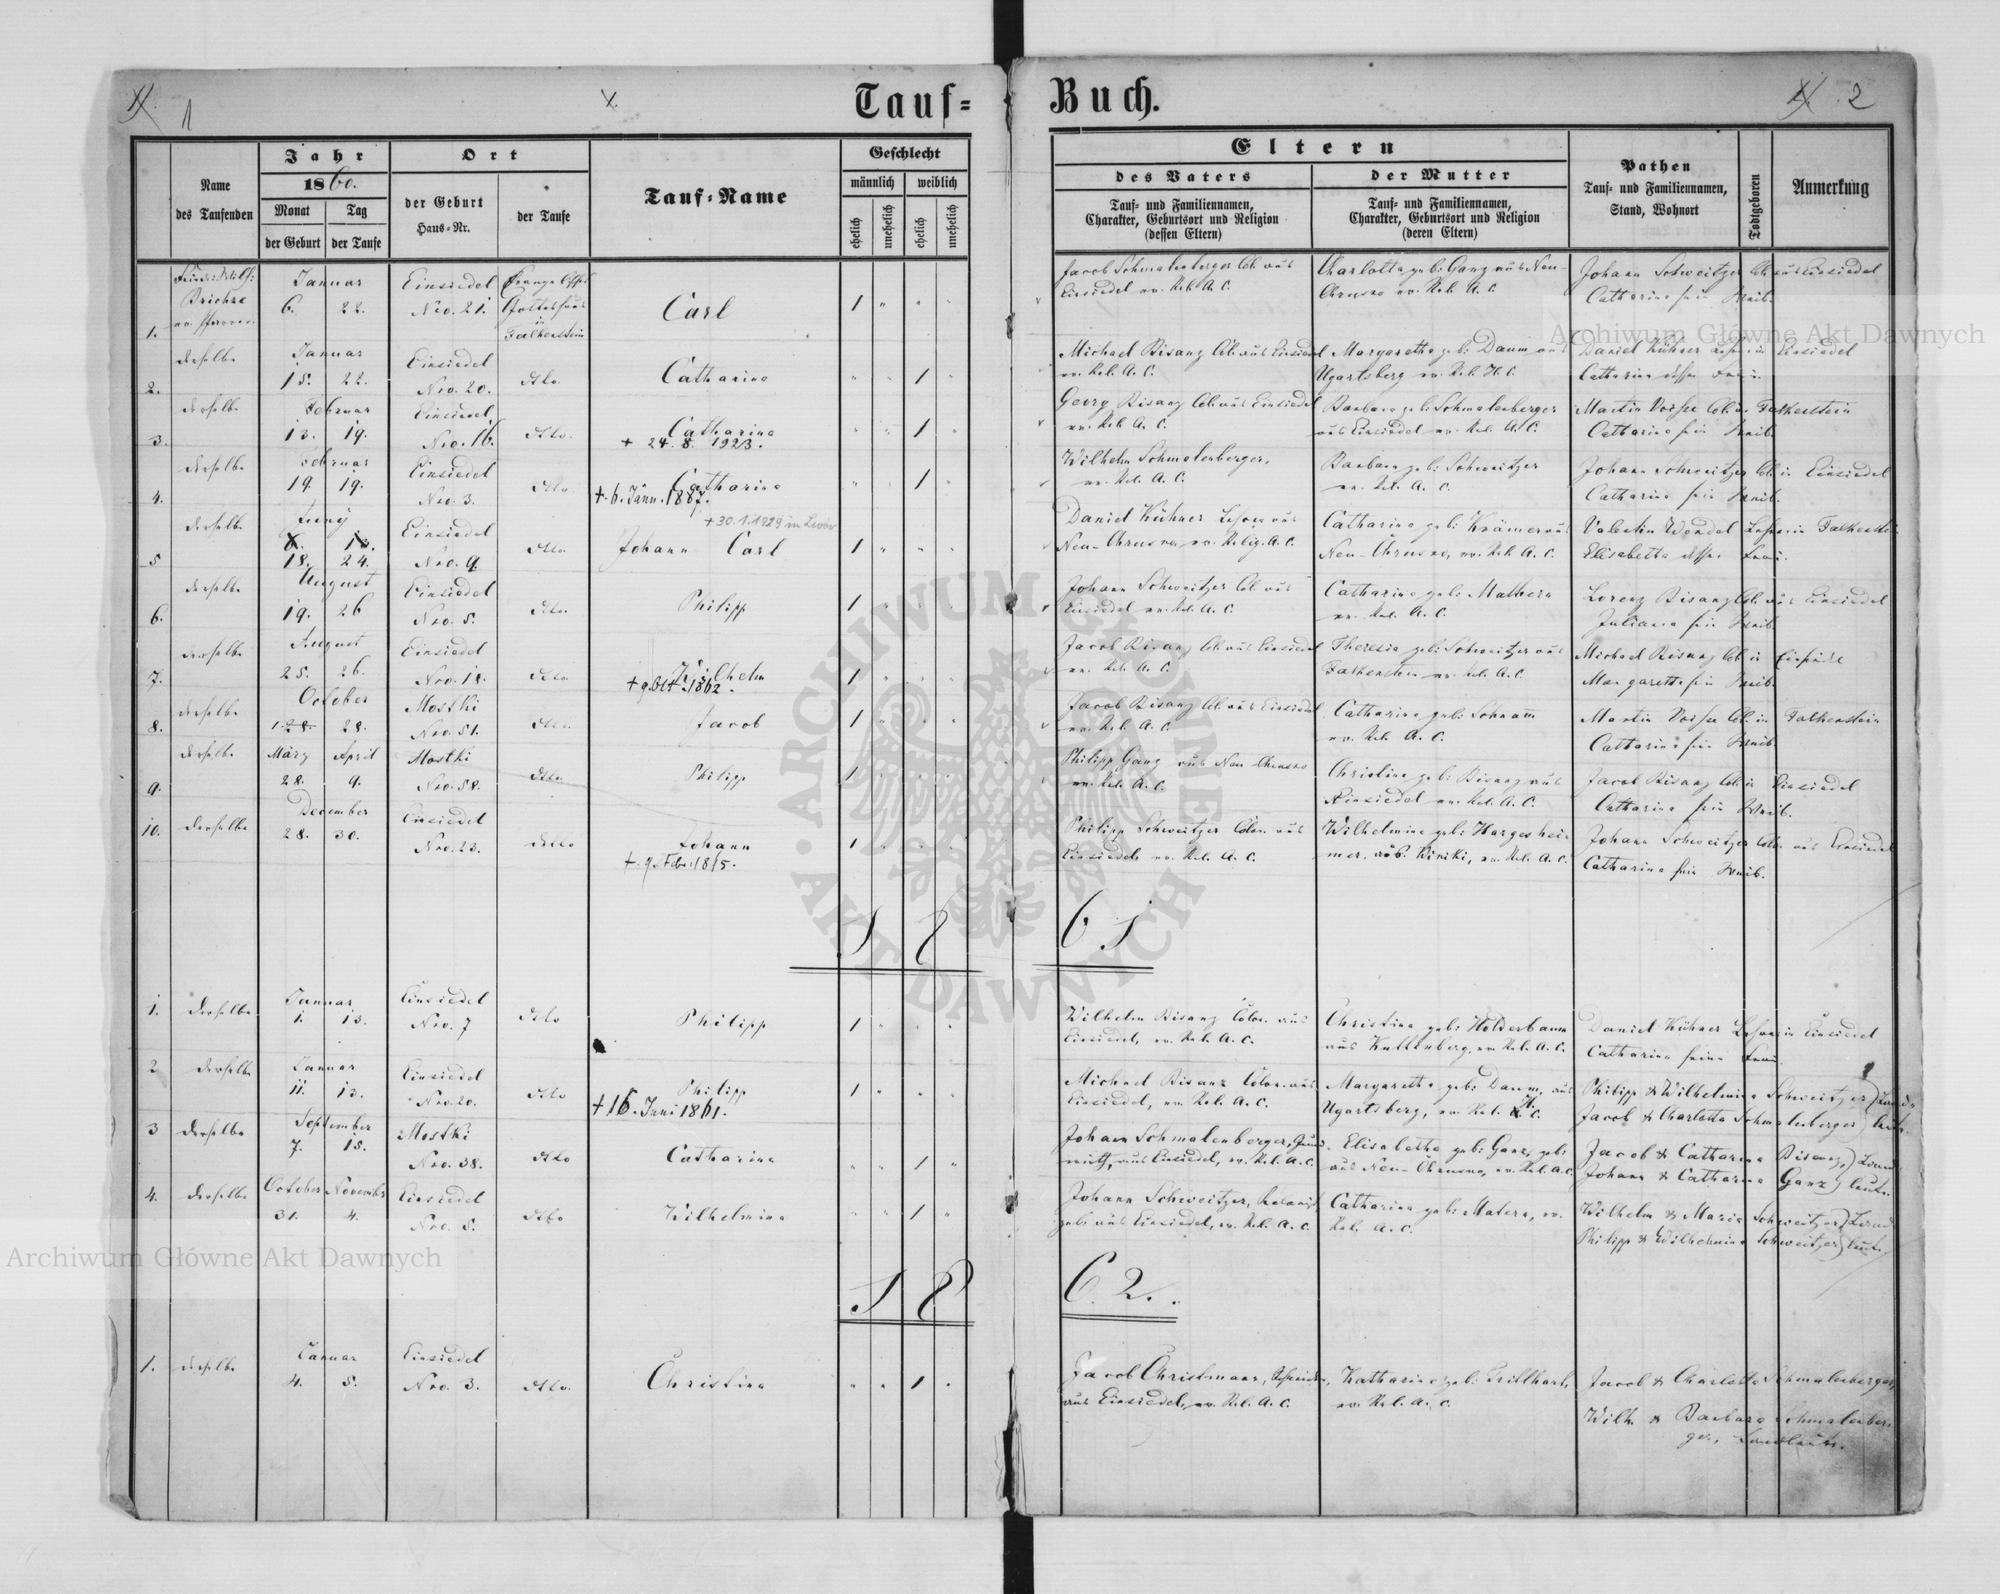 1
Tauf=
Buch.
2
Name
des Taufenden
Jahr
1860.
Monat
Tag
der Geburt
der Taufe
Ort
der Geburt
Haus=Nr.
der Taufe
Tauf=Name
Geschlecht
männlich
weiblich
ehelich
unehelich
ehelich
unehelich
Eltern
des Vaters
Tauf= und Familiennamen,
Charakter, Geburtsort und Religion
(dessen Eltern)
der Mutter
Tauf= und Familiennamen,
Charakter, Geburtsort und Religion
(deren Eltern)
Pathen
Tauf= und Familiennamen,
Stand, Wohnort
Todtgeboren
Anmerkung
1.
Januar
6. 22.
Einsiedel
Nro. 21.
Falkenstein
Carl
1
Jacob Schmalenberger Col. aus
Einsiedel ev. Rel. A. C.
Charlotta geb: Ganz aus Neu-
Chrusno ev. Rel. A. C.
Johann Schweitzer Col. aus Einsiedel
Catharina sein Weib.
2. derselbe
Januar
15. 22.
Einsiedel
Nro. 20.
dtto.
Catharina
1
Michael Bisanz Col. aus Einsiedel
ev. Rel. A. C.
Margaretha geb: Daum aus
Ugartsberg ev. Rel. H. C.
Daniel Kühner Lehrer in Einsiedel
Catharina dessen Frau.
3. derselbe
Februar
13. 19.
Einsiedel
Nro. 16.
dtto.
Catharina
+ 24. 8. 1923.
1
Georg Bisanz Col. aus Einsiedel
ev. Rel. A. C.
Barbara geb: Schmalenberger
aus Einsiedel ev. Rel. A. C.
Martin Col. in Falkenstein
Catharina sein Weib.
4. derselbe
Februar
19. 19.
Einsiedel
Nro. 3.
dtto.
Catharina
+ 6. Jänn. 1887.
1
Wilhelm Schmalenberger,
ev. Rel. A. C.
Barbara geb: Schweitzer
ev. Rel. A. C.
Johann Schweitzer Col. in Einsiedel
Catharina sein Weib.
5 derselbe
Juny
18. 24.
Einsiedel
Nro. 9
dtto.
+ 30. 1. 1929 in Lwów
Johann Carl
1
Daniel Kühner Lehrer aus
Neu-Chrusno ev. Relig. A. C.
Catharina geb: Krämer aus
Neu-Chrusno, ev. Rel. A. C.
Valentin Wendel Lehrer in Falkenstein
Elisabetha dessen Frau.
6. derselbe
August
19. 26
Einsiedel
Nro. 5.
dtto.
Philipp
1
Johann Schweitzer Col. aus
Einsiedel ev. Rel. A. C.
Catharina geb: Mathern
ev. Rel. A. C.
Lorenz Bisanz Col. aus Einsiedel
Juliana sein Weib.
7. derselbe
August
25. 26.
Einsiedel
dtto
Wilhelm
+ 9. Okt. 1862.
1
Jacob Bisanz Col. aus Einsiedel
ev. Rel. A. C.
Theresia geb: Schweitzer aus
Falkenstein ev. Rel. A. C.
Michael Bisanz Col. in Einsiedel
Margaretha sein Weib.
8. derselbe
October
28.
Mostki
Nro. 51.
dtto.
Jacob
1
Jacob Bisanz Col. aus Einsiedel
ev. Rel. A. C.
Catharina geb: Schramm
ev. Rel. A. C.
Martin Col. in Falkenstein
Catharina sein Weib.
9. derselbe
März April
28. 9.
Mostki
Nro. 58.
dtto.
Philipp
1
Philipp Ganz aus Neu Chrusno
ev. Rel. A. C.
Christina geb: Bisanz aus
Einsiedel ev. Rel. A. C.
Jacob Bisanz Col. in Einsiedel
Catharina sein Weib.
10. derselbe
December
28. 30.
Einsiedel
Nro. 23.
ditto
Johann
+ 9. Febr. 1865.
1
Philipp Schweitzer Colon. aus
Einsiedel, ev. Rel. A. C.
Wilhelmina geb: Hargeshei-
mer, ev. Rel. A. C.
Johann Schweitzer Colon. aus Einsiedel
Catharina sein Weib.
1 8 6 1
1. derselbe
Januar
1. 13.
Einsiedel
Nro. 7
dtto
Philipp
1
Wilhelm Bisanz Colon. aus
Einsiedel, ev. Rel. A. C.
Christina geb: Holderbaum
aus Kuttenberg, ev. Rel. A. C.
Daniel Kühner Lehrer in Einsiedel
Catharina seine Frau.
2 derselbe
Januar
11. 13.
Einsiedel
Nro. 20.
dtto
Philipp
+ 16. Juni 1861.
1
Michael Bisanz Colon. aus
Einsiedel, ev. Rel. A. C.
Margaretha geb: Daum, aus
Ugartsberg, ev. Rel. H. C.
Philipp & Wilhelmina Schweitzer Land-
Jacob & Charlotta Schmalenberger leute.
3 derselbe
September
7. 15.
Mostki
Nro. 38.
dtto
Catharina
1
Johann Schmalenberger, Grund-
wirth, aus Einsiedel, ev. Rel. A. C.
Elisabetha geb: Ganz, geb:
aus Neu-Chrusno, ev. Rel. A. C.
Jacob & Catharina Bisanz, Land-
Johann & Catharina Ganz leute.
4. derselbe
October November
31. 4.
Einsiedel
Nro. 5.
dtto
Wilhelmina
1
Johann Schweitzer,
geb: aus Einsiedel, ev. Rel. A. C.
Catharina geb: Matern, ev.
Rel. A. C.
Wilhelm & Maria Schweitzer Land-
Philipp & Wilhelmina Schweitzer leute.
1 8 6 2.
1. derselbe
Januar
4. 5.
Einsiedel
Nro. 3.
dtto.
Christina
1
Jacob Christmann,
aus Einsiedel, ev. Rel. A. C.
Katharina geb:
ev. Rel. A. C.
Jacob & Charlotta Schmalenberger,
Wilh. & Barbara Schmalenber-
ger, Landleute.
Archiwum Główne Akt Dawnych
Archiwum Główne Akt Dawnych
ARCHIWUM GŁÓWNE · AKT DAWNYCH ·